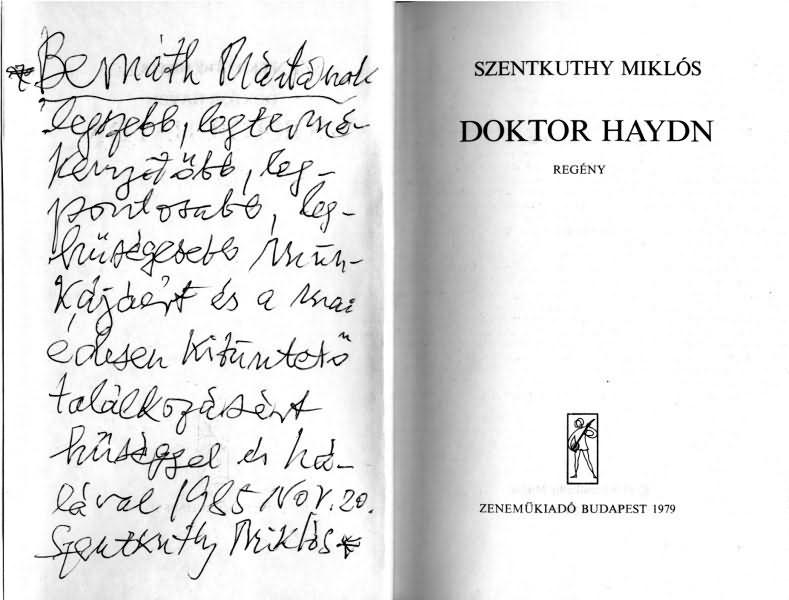 Bernáth Máriának
legszebb, legtermé-
kenyítőbb, leg-
pontosabb, leg-
hűségesebb mun-
kájáért és a mai
édesen kitüntető
találkozásért
hűséggel és há-
lával 1985 NOV. 20.
Szentkuthy Miklós
SZENTKUTHY MIKLÓS
DOKTOR HAYDN
REGÉNY
ZENEMŰKIADÓ BUDAPEST 1979